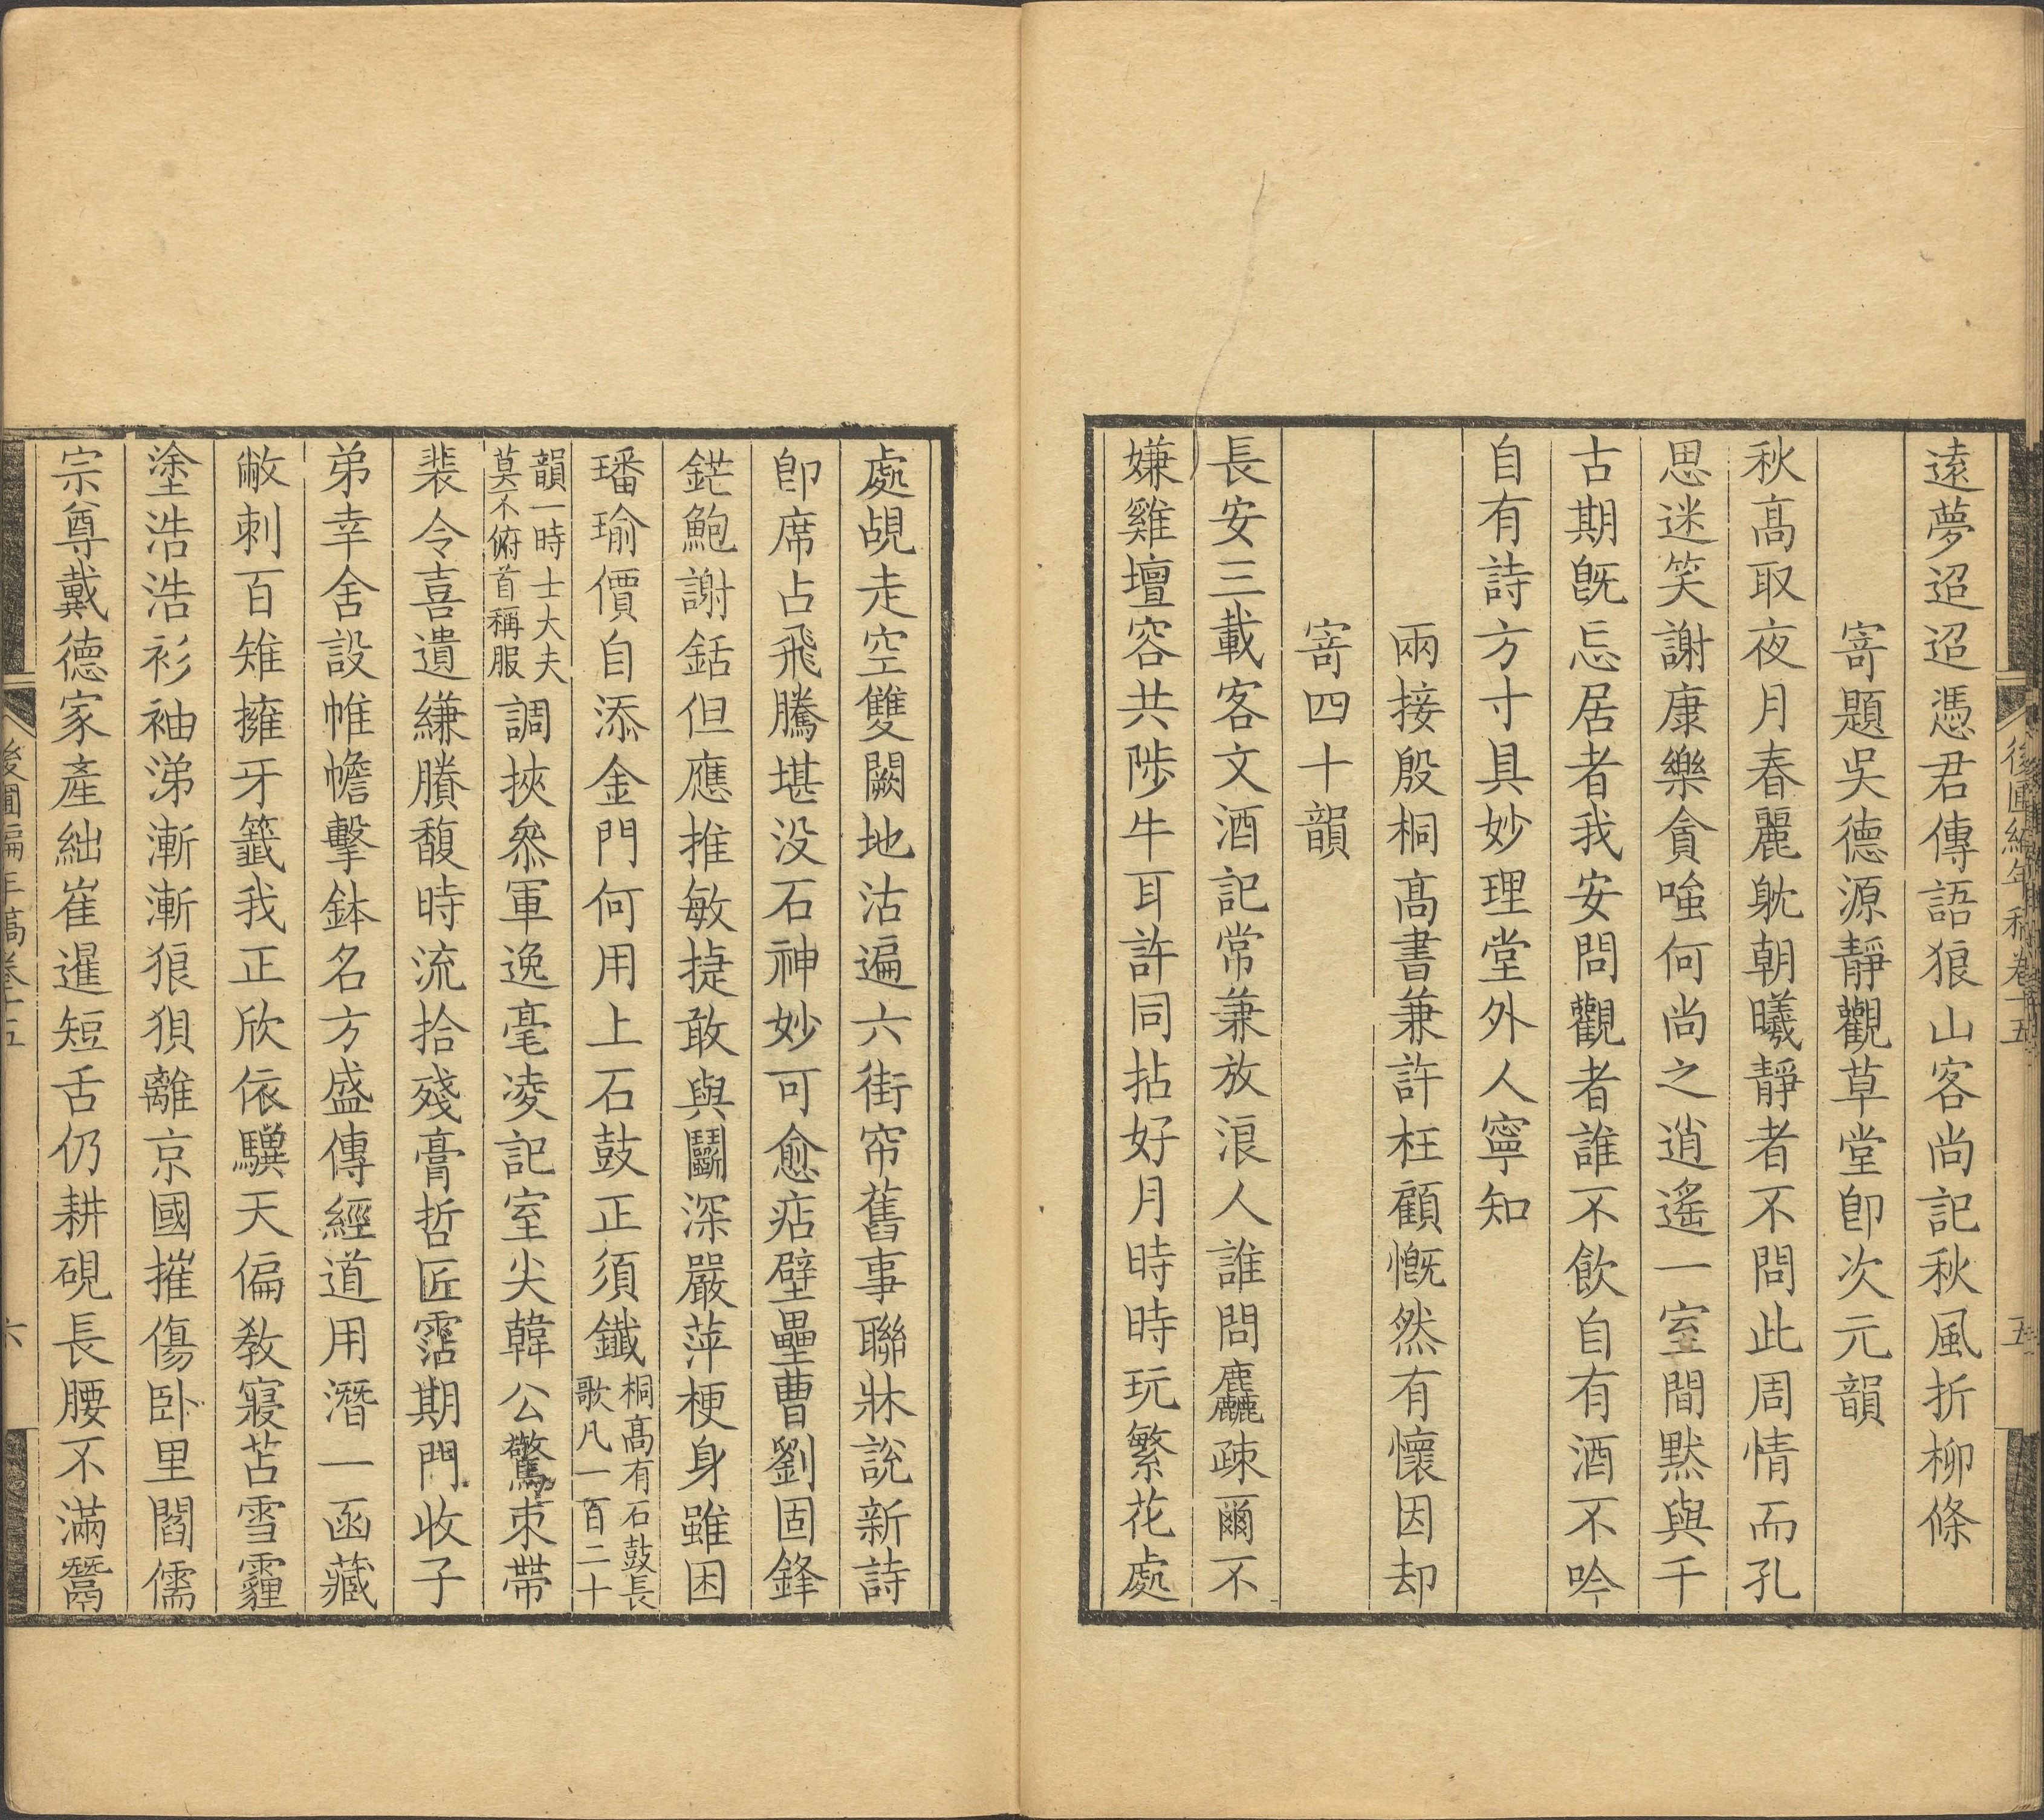 遠夢迢迢憑君傳語狼山客尚記秋風折柳條
寄題吳德源靜觀草堂卽次元韻
秋高取夜月春麗躭朝曦靜者不問此周情而孔
思迷笑謝康樂貪嗤何尚之逍遙一室間默與千
古期旣忘居者我安問觀者誰不飲自有酒不吟
自有詩方寸具妙理堂外人寧知
兩接殷桐高書兼許枉顧慨然有懷因却
寄四十韻
長安三載客文酒記常兼放浪人誰問麤疎爾不
嫌雞壇容共陟牛耳許同拈好月時時玩繁花處
後圃編年稿卷十五
五
處覘走空雙闕地沽遍六街帘舊事聯牀說新詩
卽席占飛騰堪没石神妙可愈痁壁壘曹劉固鋒
鋩鮑謝銛但應推敏捷敢與鬭深嚴萍梗身雖困
璠瑜價自添金門何用上石鼓正須鐵桐高有石鼓長歌凡一百二十
韻一時士大夫莫不俯首稱服調挾叅軍逸毫凌記室尖韓公驚束帶
裴令喜遺縑賸馥時流拾殘膏哲匠霑期門收子
弟幸舍設帷幨擊鉢名方盛傳經道用潛一函藏
敝刺百雉擁牙籤我正欣依驥天偏教寢苫雪霾
塗浩浩衫袖涕漸漸狼狽離京國摧傷卧里閻儒
宗尊戴德家產絀崔暹短舌仍耕硯長腰不滿鬵
後圃編年稿卷十五
六